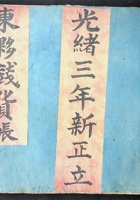 光緒三年新正立
東夥錢貨賬